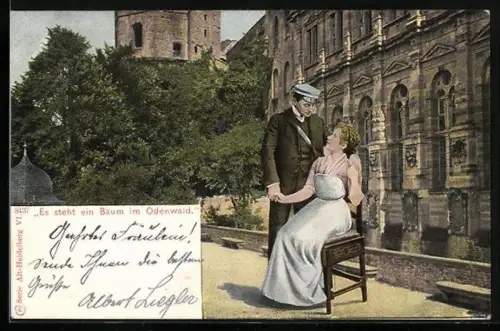 8437 „Es steht ein Baum im Odenwald.“
Serie Alt-Heidelberg VI.
Geehrtes Fräulein!
Sende Ihnen die besten
Grüße
Albert Ziegler